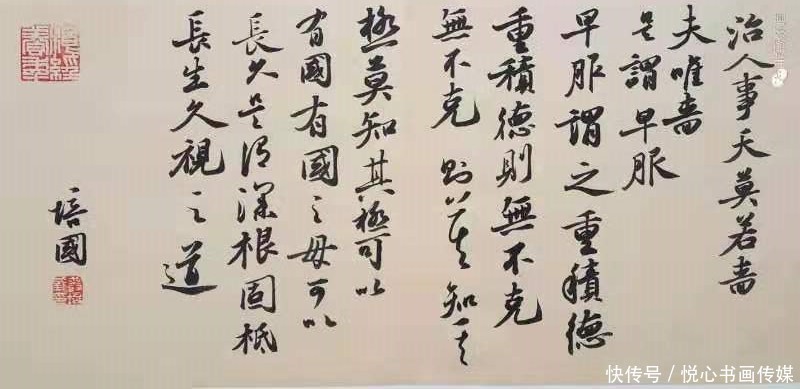 治人事天莫若嗇
夫唯嗇
是謂早服
早服謂之重積德
重積德則無不克
無不克則莫知其
極莫知其極可以
有國有國之母可以
長久是謂深根固柢
長生久視之道
培國
快传号/悦心书画传媒